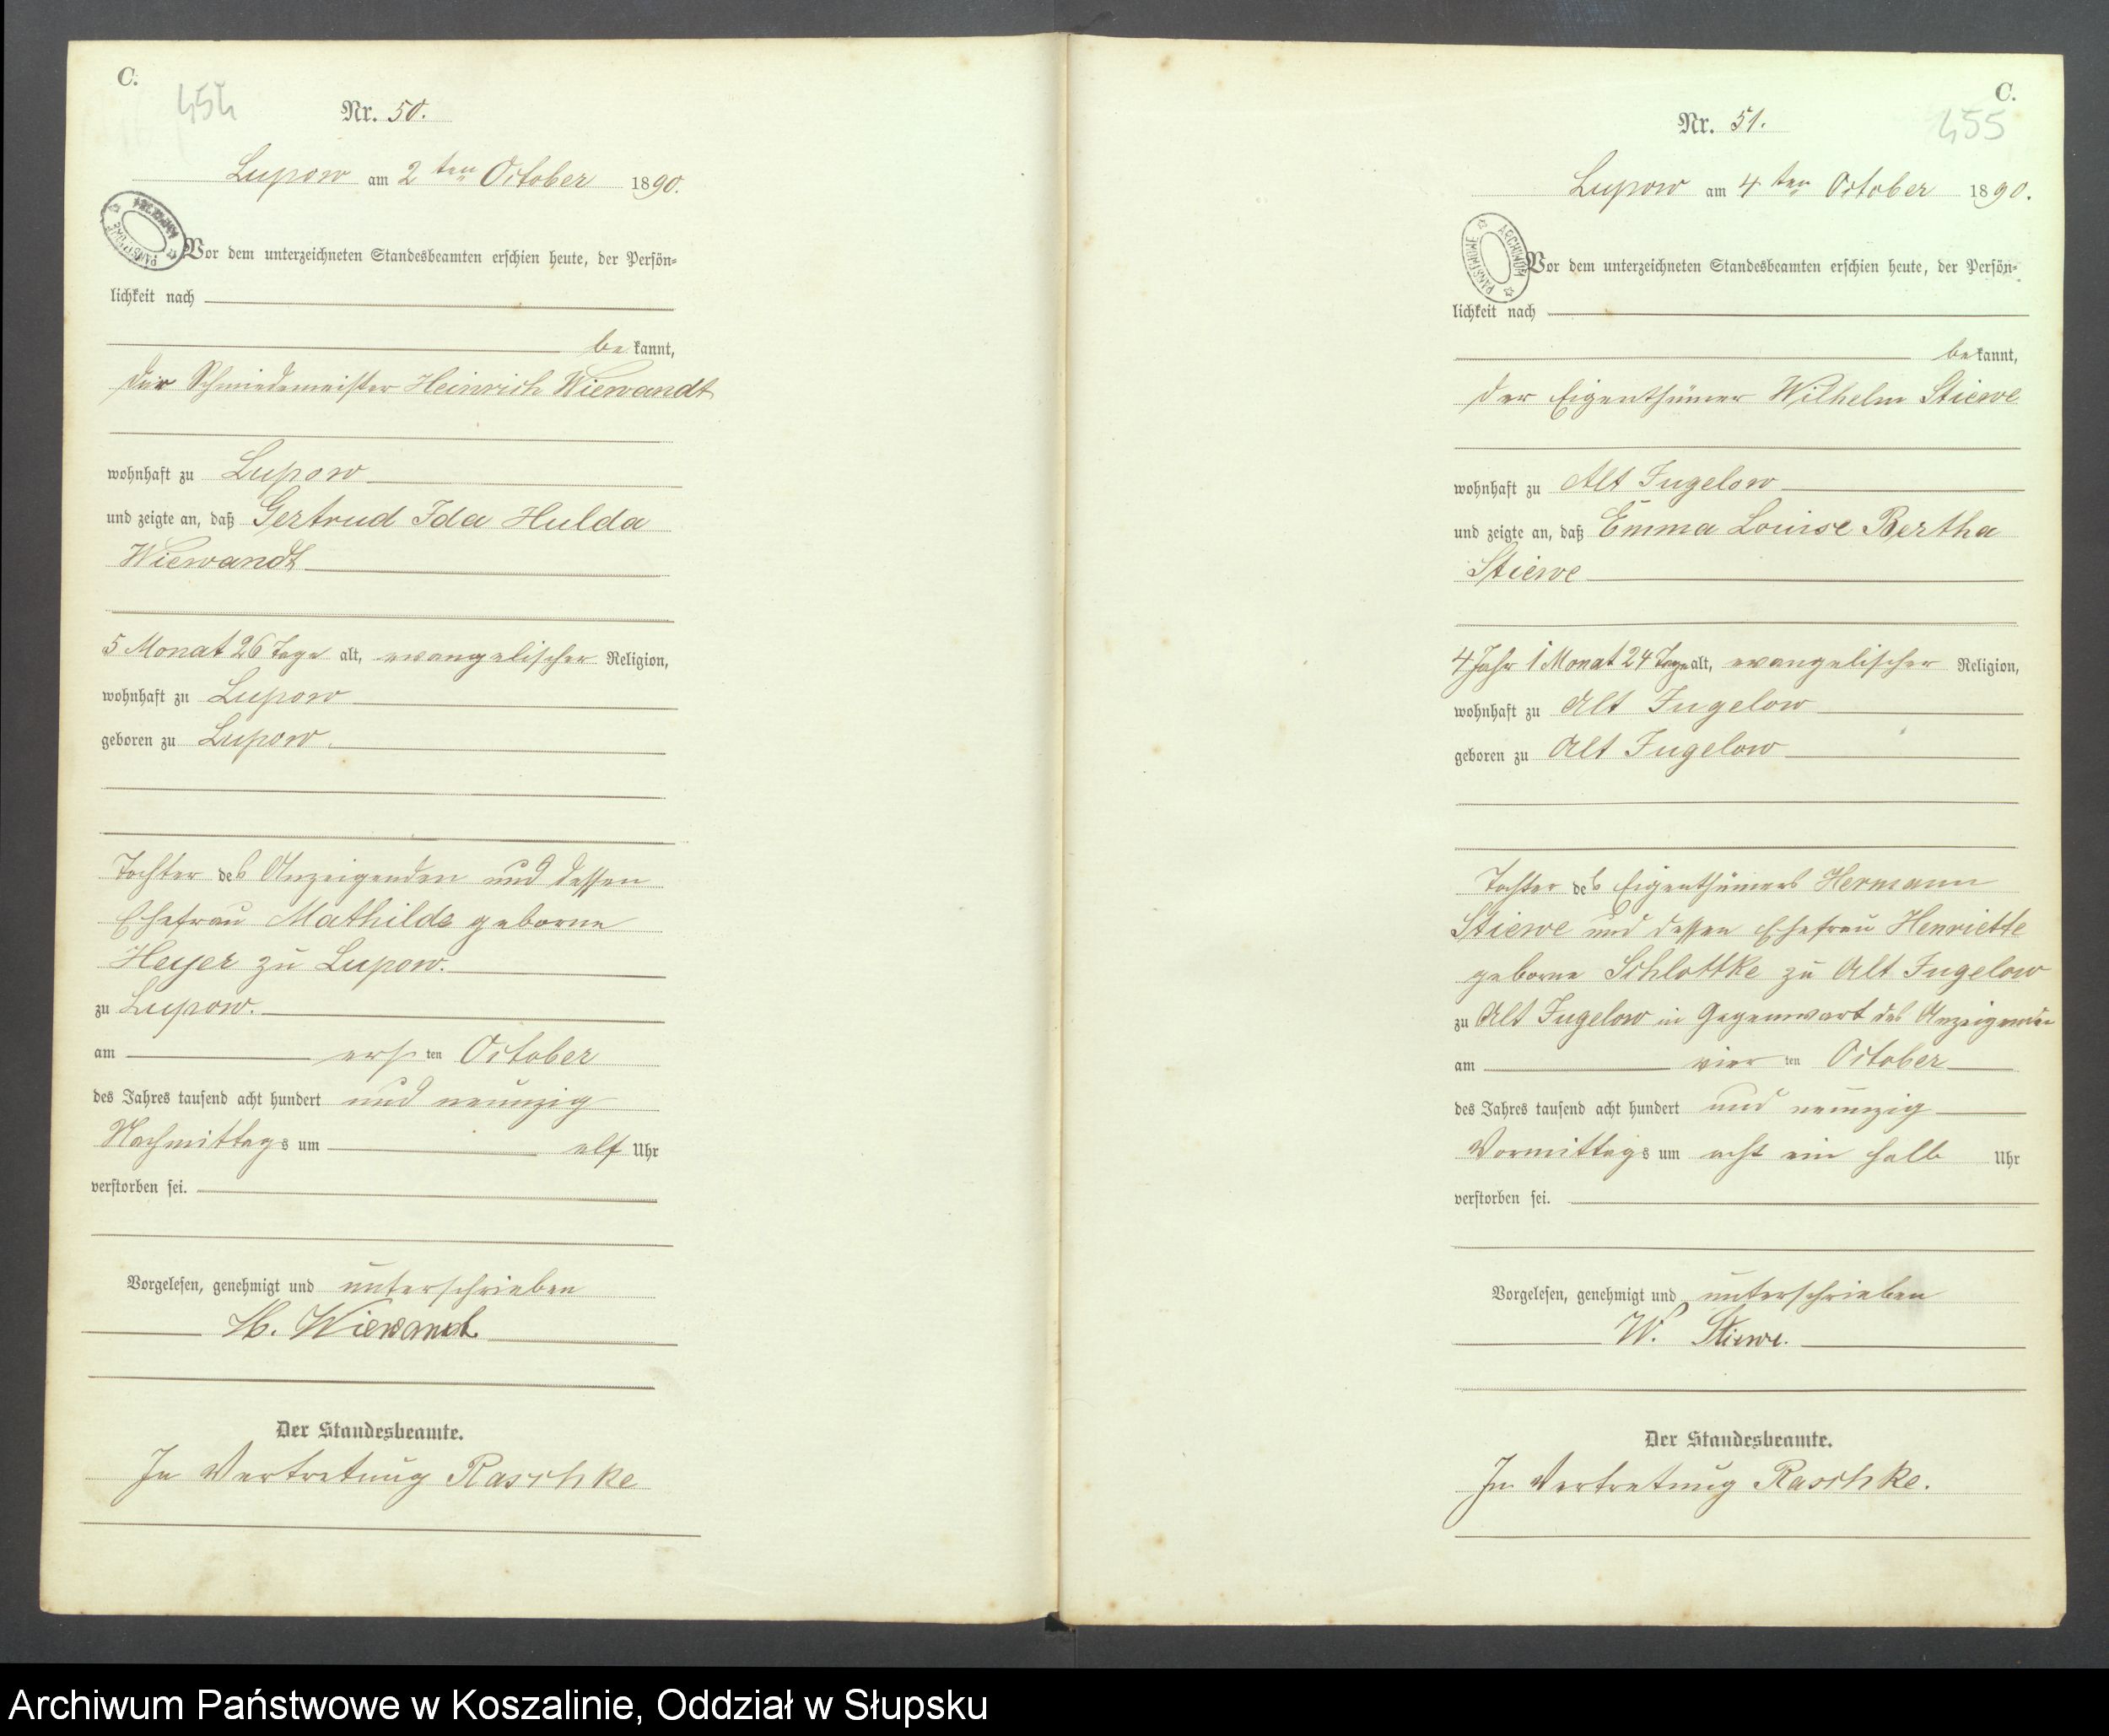 C.
454
Nr. 50.
Lupow am 2 ten October 1890.
ARCHIWUM PAŃSTWOWE
Vor dem unterzeichneten Standesbeamten erschien heute, der Persön-
lichkeit nach
bekannt,
der Schmiedemeister Heinrich Wiewandt
wohnhaft zu Lupow
und zeigte an, daß Gertrud Ida Hulda
Wiewandt
5 Monat 26 Tage alt, evangelischer Religion,
wohnhaft zu Lupow
geboren zu Lupow.
Tochter des Anzeigenden und dessen
Ehefrau Mathilde geborne
Heyer zu Lupow.
zu Lupow.
am ersten October
des Jahres tausend acht hundert und neunzig
Nachmittags um elf Uhr
verstorben sei.
Vorgelesen, genehmigt und unterschrieben
H. Wiewandt
Der Standesbeamte.
In Vertretung Raschke
C.
455
Nr. 51.
Lupow am 4 ten October 1890.
ARCHIWUM PAŃSTWOWE
Vor dem unterzeichneten Standesbeamten erschien heute, der Persön-
lichkeit nach
bekannt,
der Eigenthümer Wilhelm Stiewe
wohnhaft zu Alt Jugelow
und zeigte an, daß Emma Louise Bertha
Stiewe
4 Jahr 1 Monat 24 Tage alt, evangelischer Religion,
wohnhaft zu Alt Jugelow
geboren zu Alt Jugelow
Tochter des Eigenthümers Hermann
Stiewe und dessen Ehefrau Henriette
geborne Schlottke zu Alt Jugelow
zu Alt Jugelow in Gegenwart des Anzeigenden
am vierten October
des Jahres tausend acht hundert und neunzig
Vormittags um acht ein halb Uhr
verstorben sei.
Vorgelesen, genehmigt und unterschrieben
W. Stiewe.
Der Standesbeamte.
In Vertretung Raschke.
Archiwum Państwowe w Koszalinie, Oddział w Słupsku